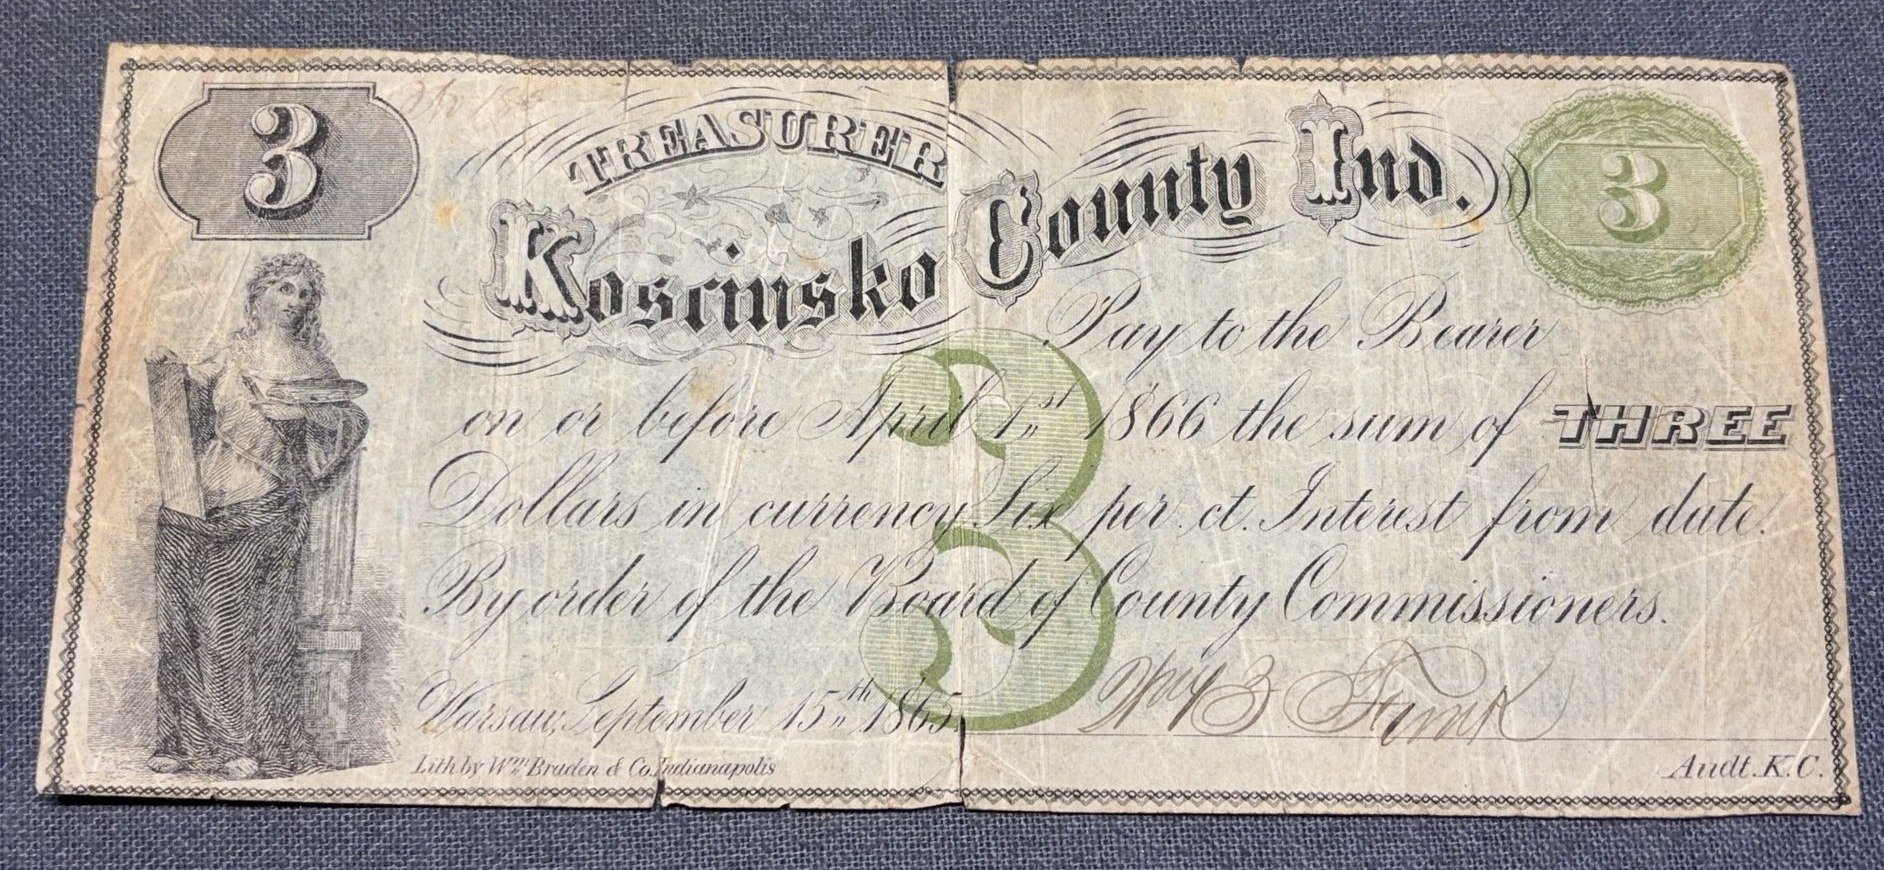 3
TREASURER
3
Kosciusko County Ind.
Pay to the Bearer
on or before April 1st 1866 the sum of THREE
Dollars in currency Six per. ct. Interest from date.
By order of the Board of County Commissioners.
3
Warsaw, September 15th 1865.
Lith by Wm Braden & Co. Indianapolis
Audt. K. C.